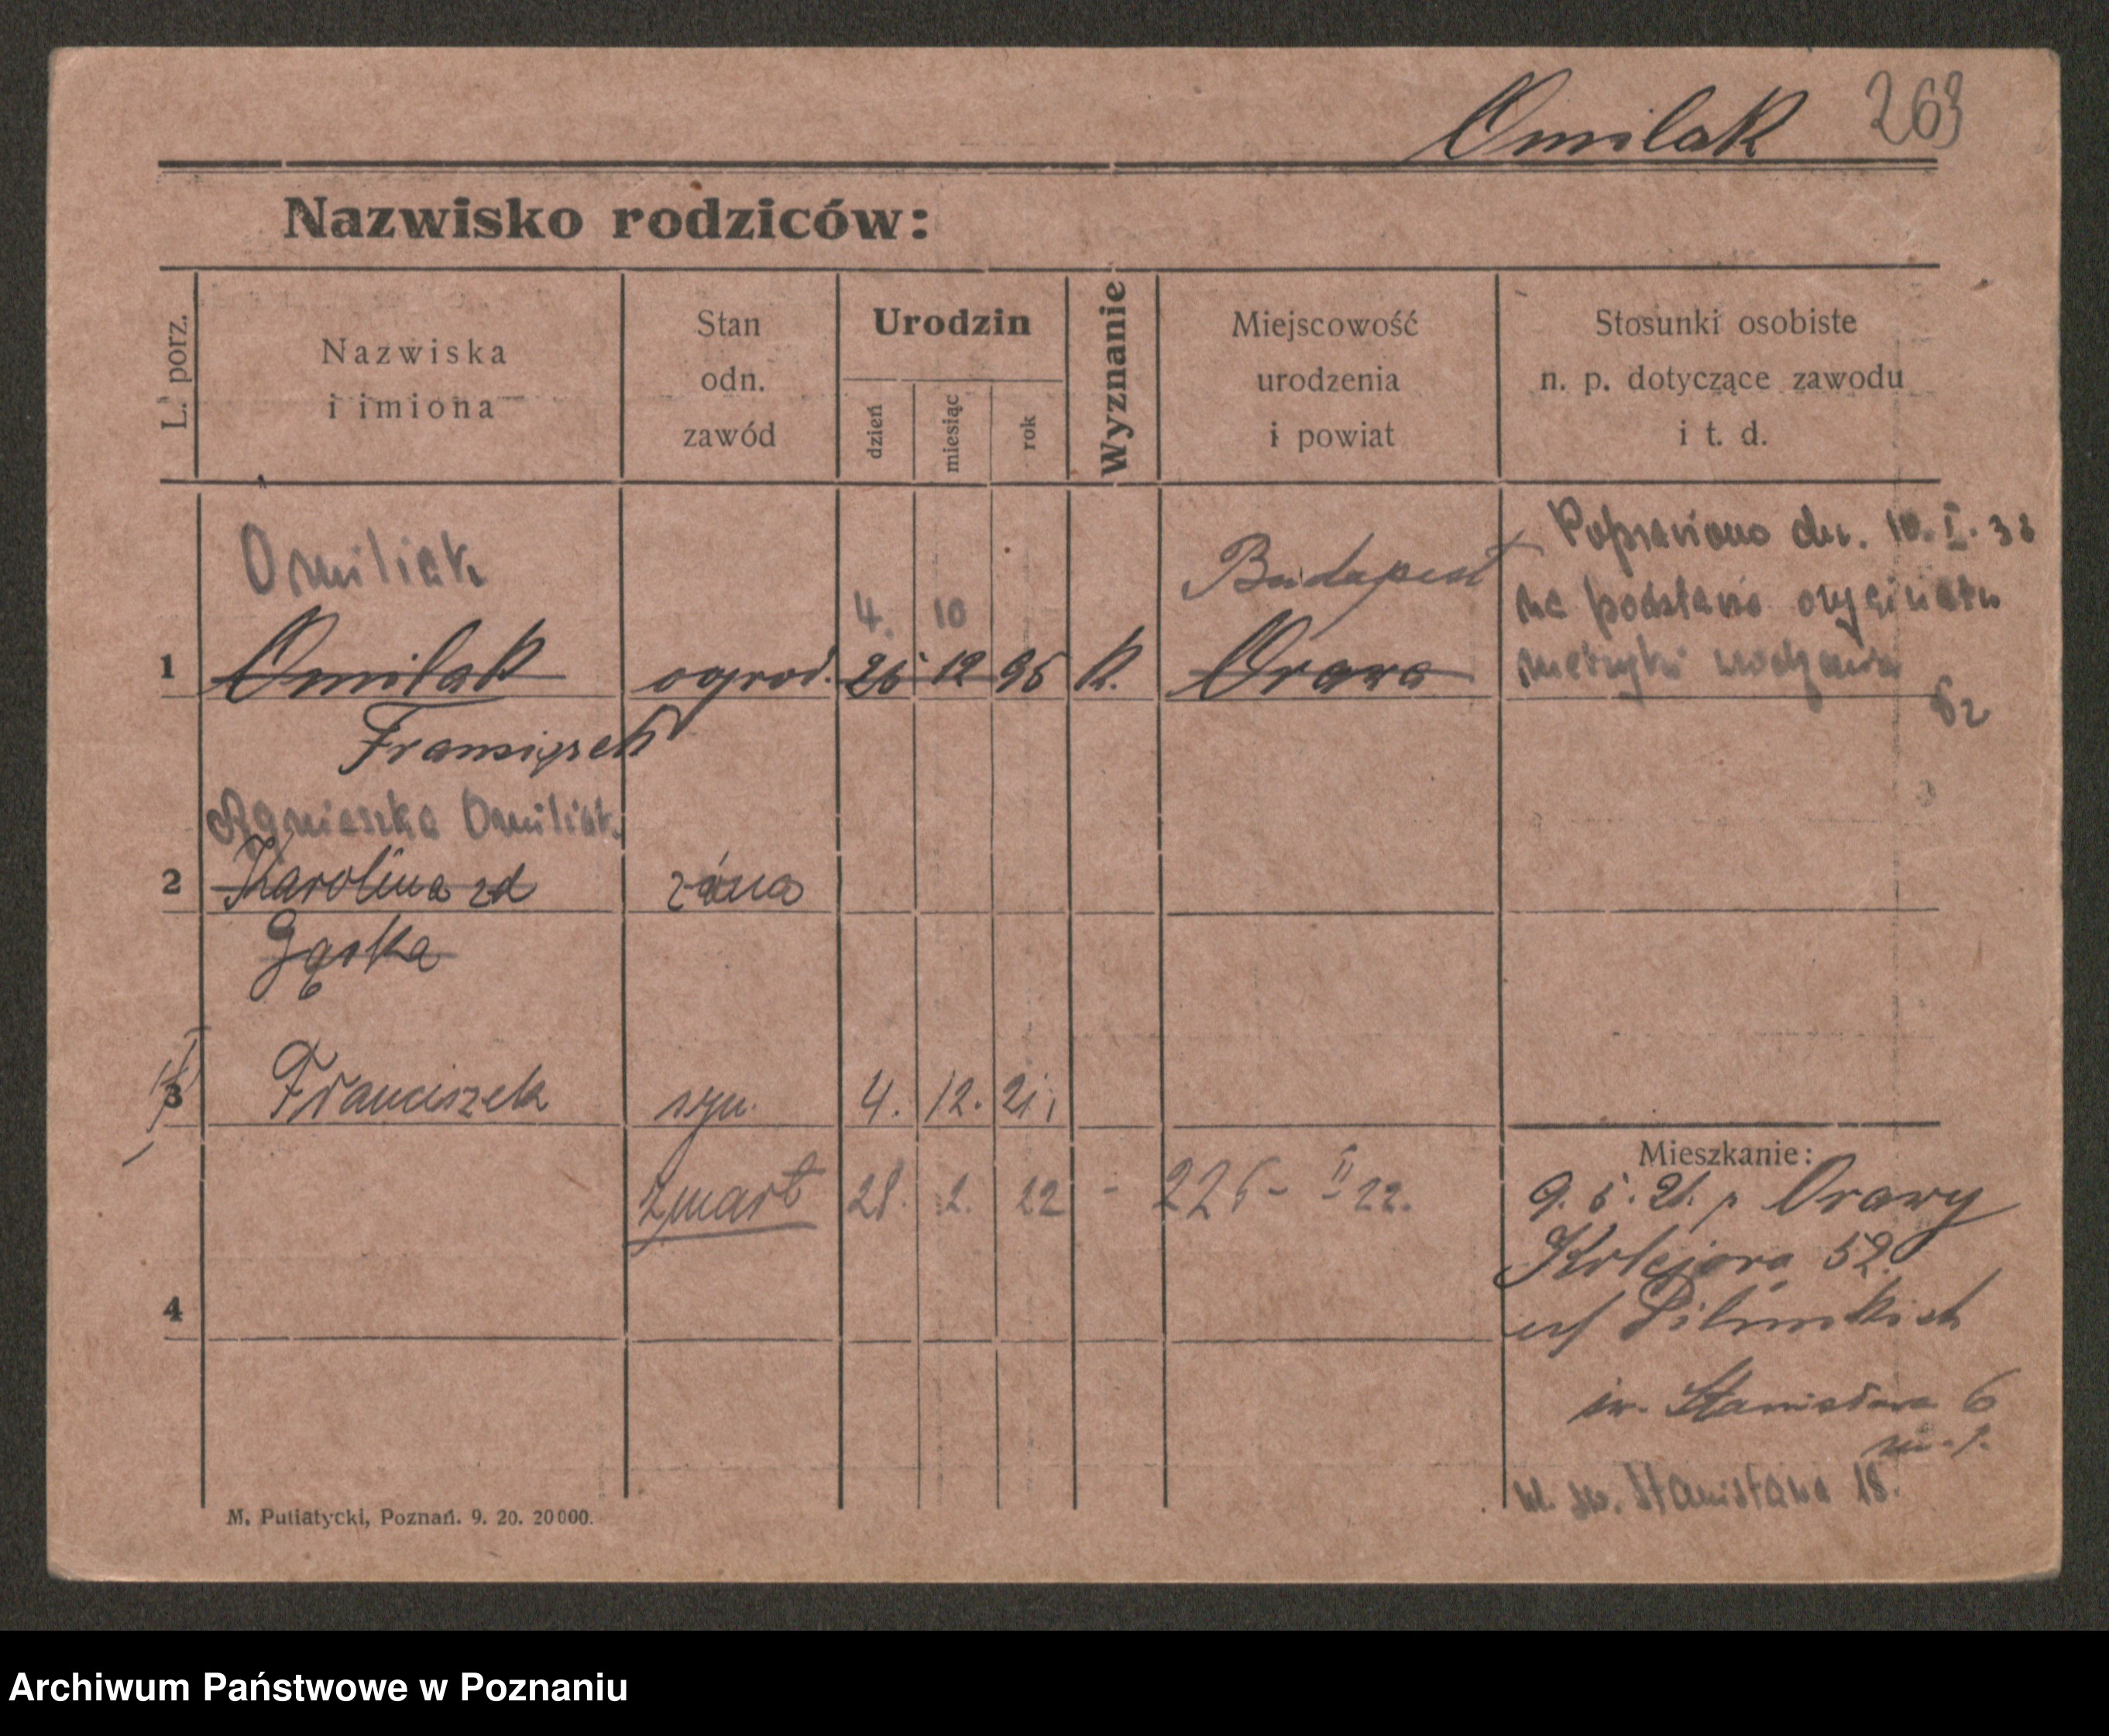 Omilak 263
Nazwisko rodziców:
L. porz.
Nazwiska
i imiona
Stan
odn.
zawód
Urodzin
dzień
miesiąc
rok
Wyznanie
Miejscowość
urodzenia
i powiat
Stosunki osobiste
n. p. dotyczące zawodu
i t. d.
Omiliak
Budapest
Poprawiono dn. 10. I. 38
na podstawie oryginału
metryki urodzenia
4. 10
1 Omilak ogrod. 26 12 95 k. Orawa
Franciszek
Agnieszka Omiliak
2 Karolina zd żona
Gąska
3 Franciszek syn. 4. 12. 21.
zmarł 28. 2. 22 - 226 - II 22.
Mieszkanie:
9. 5. 21. z Orawy
Kolejowa 52
św. Stanisława 6
m. 1.
ul. św. Stanisława 18.
4
M. Putiatycki, Poznań. 9. 20. 20000.
Archiwum Państwowe w Poznaniu